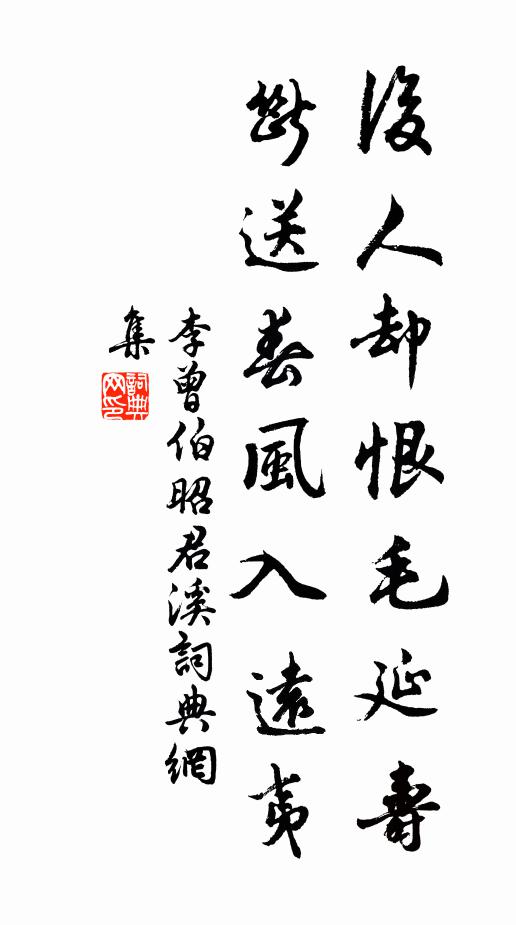 後人却恨毛延壽
斷送春風入遠夷
李曾伯昭君溪詞典網
集
詞典网印